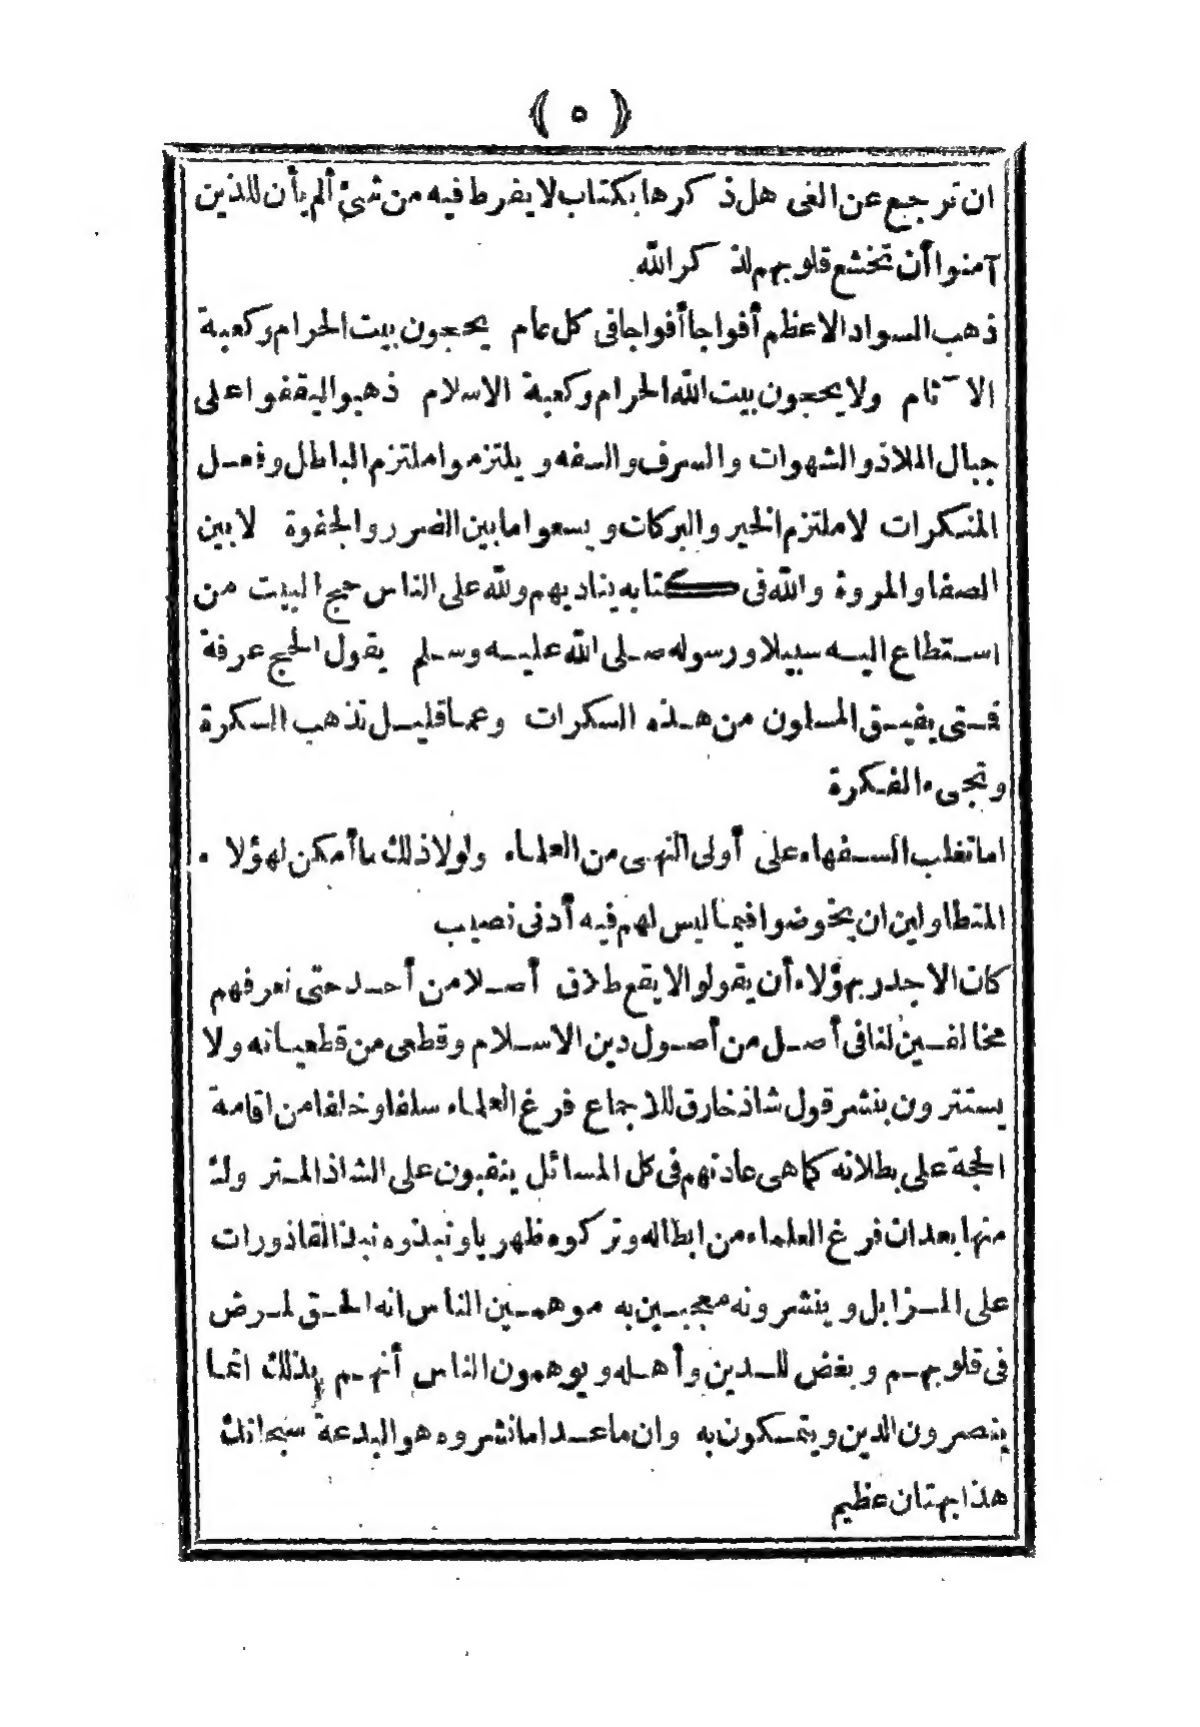 ﴿ ٥ ﴾
ان ترجع عن الغى هل ذكرها بكتاب لا يفرط فيه من شئ ألم يأن للذين
آمنوا أن تخشع قلوبهم لذكر الله
ذهب السواد الاعظم أفواجا أفواجا فى كل عام يحجون بيت الحرام وكعبة
الآثام ولا يحجون بيت الله الحرام وكعبة الاسلام ذهبوا ليقفوا على
جبال الملاذ والشهوات والسرف والسفه ويلتزموا ملتزم الباطل وفعل
المنكرات لا ملتزم الخير والبركات ويسعوا ما بين الضرر والجفوة لا بين
الصفا والمروة والله فى كتابه يناديهم ولله على الناس حج البيت من
استطاع اليه سبيلا ورسوله صلى الله عليه وسلم يقول الحج عرفة
فمتى يفيق المسلمون من هذه السكرات وعما قليل تذهب السكرة
وتجىء الفكرة
اما تغلب السفهاء على أولى النهى من العلماء ولولا ذلك ما أمكن لهؤلاء
المتطاولين ان يخوضوا فيما ليس لهم فيه أدنى نصيب
كان الاجدر بهؤلاء أن يقولوا لا يقع طلاق أصلا من أحد حتى نعرفهم
مخالفين لنا فى أصل من أصول دين الاسلام وقطعى من قطعياته ولا
يستترون بنشر قول شاذ خارق للاجماع فرغ العلماء سلفا وخلفا من اقامة
الحجة على بطلانه كما هى عادتهم فى كل المسائل ينقبون على الشاذ المتروك
منها بعد ان فرغ العلماء من ابطاله وتركوه ظهريا ونبذوه نبذ القاذورات
على المزابل وينشرونه معجبين به موهمين الناس انه الحق لمرض
فى قلوبهم وبغض للدين وأهله ويوهمون الناس أنهم بذلك انما
ينصرون الدين ويتمسكون به وان ما عدا ما نشروه هو البدعة سبحانك
هذا بهتان عظيم